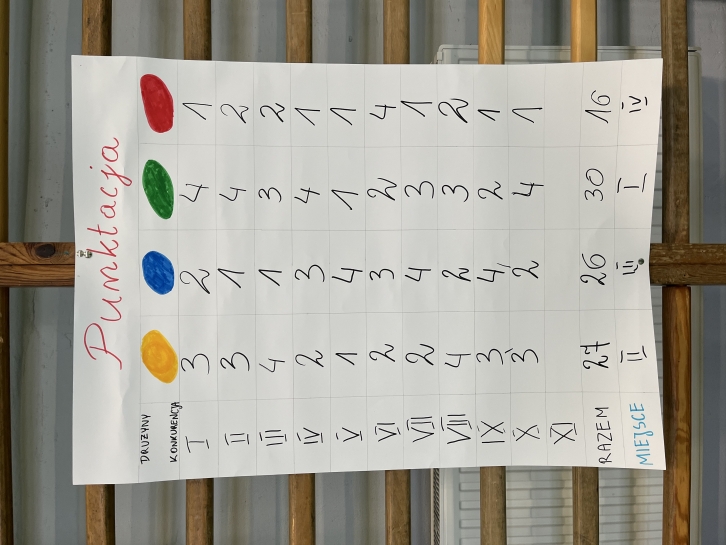 Punktacja
DRUŻYNY
KONKURENCJA
I 3 2 4 1
II 3 1 4 2
III 4 1 3 2
IV 2 3 4 1
V 1 4 1 1
VI 2 3 2 4
VII 2 4 3 1
VIII 4 2 3 2
IX 3 4 2 1
X 3 2 4 1
XI
RAZEM 27 26 30 16
MIEJSCE II III I IV